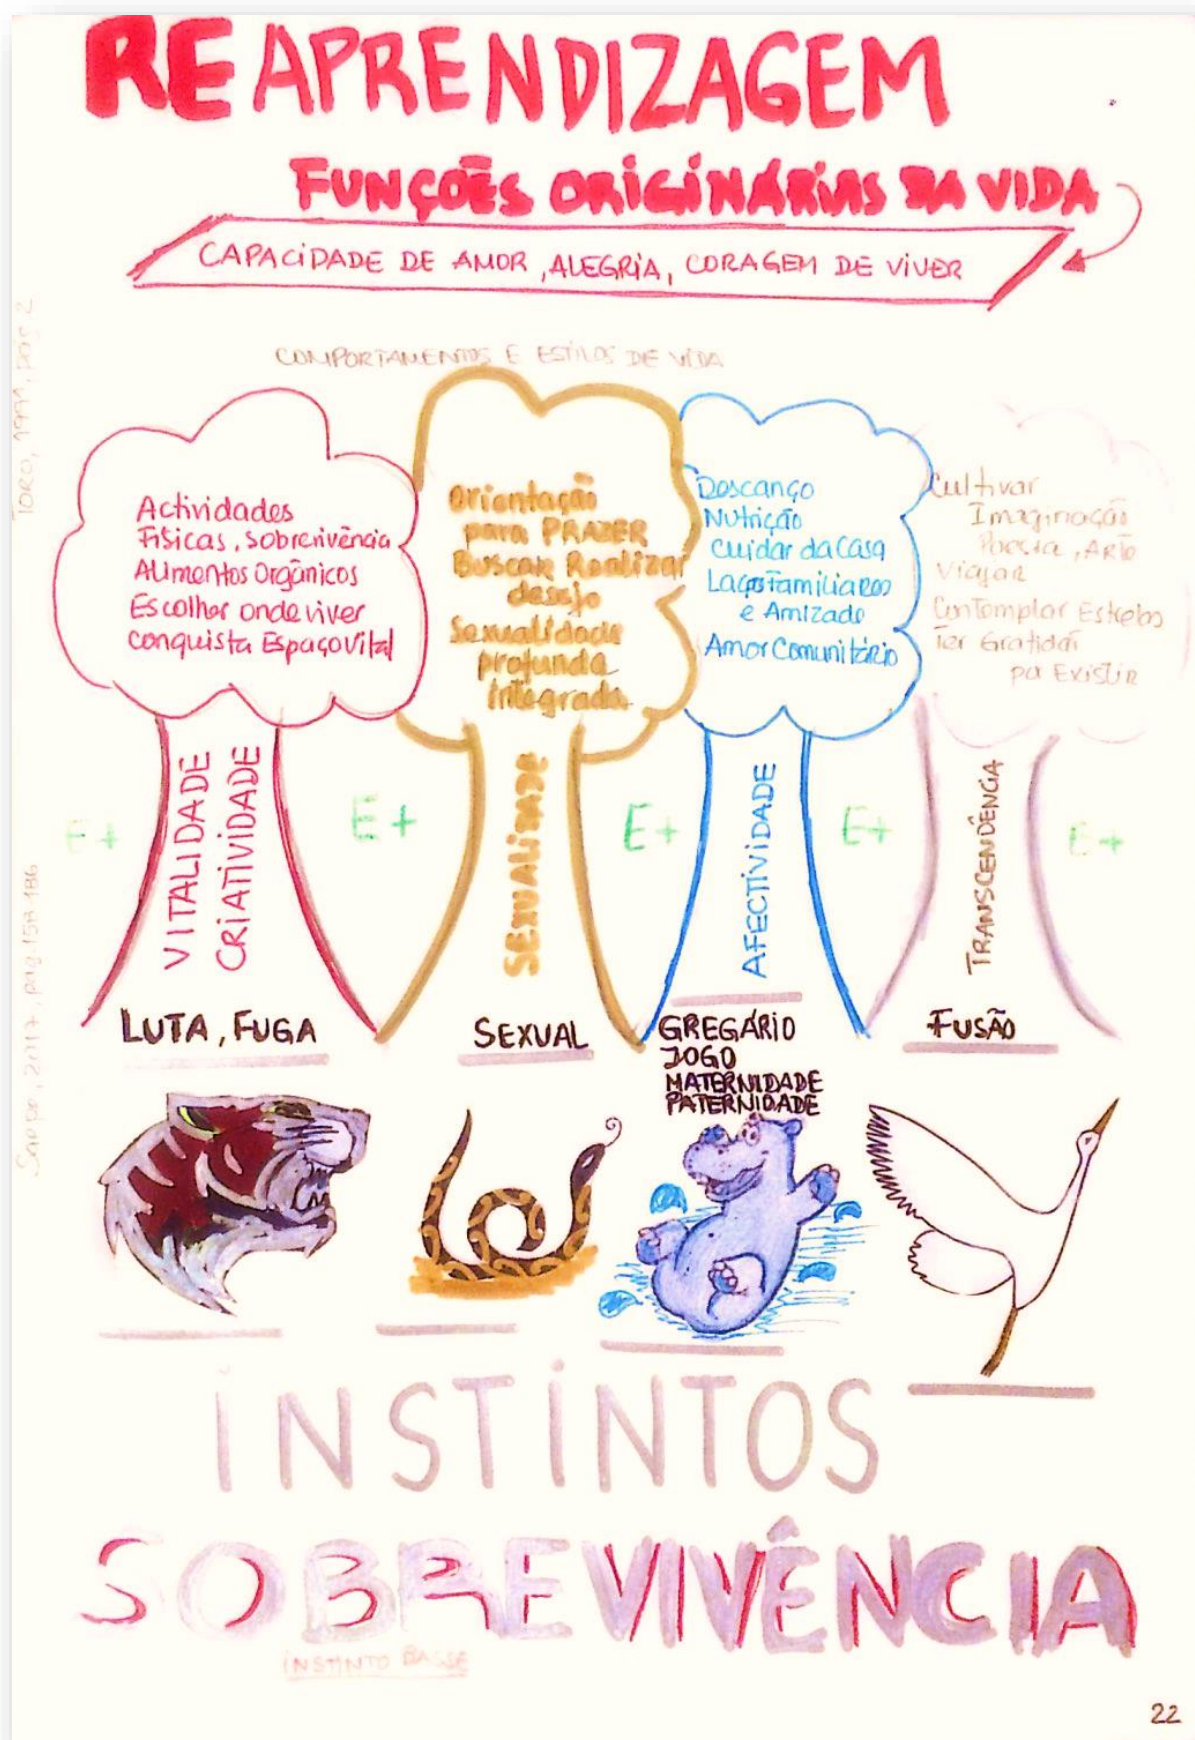 REAPRENDIZAGEM
FUNÇÕES ORIGINÁRIAS DA VIDA
CAPACIDADE DE AMOR, ALEGRIA, CORAGEM DE VIVER
TORO, 1991, pág 2
COMPORTAMENTOS E ESTILOS DE VIDA
Actividades
Físicas, Sobrevivência
Alimentos Orgânicos
Escolher onde viver
conquista Espaço Vital
Orientação
para PRAZER
Buscar Realizar
desejo
Sexualidade
profunda
integrada
Descanço
Nutrição
Cuidar da Casa
Laços Familiares
e Amizade
Amor Comunitário
Cultivar
Imaginação
Poesia, Arte
Viajar
Contemplar Estrelas
Ter Gratidão
por Existir
VITALIDADE
CRIATIVIDADE
SEXUALIDADE
AFECTIVIDADE
TRANSCENDÊNCIA
E+
E+
E+
E+
E+
2017, pág. 158-186
LUTA, FUGA
SEXUAL
GREGÁRIO
JOGO
MATERNIDADE
PATERNIDADE
FUSÃO
INSTINTOS
SOBREVIVÊNCIA
INSTINTO BASSE
22